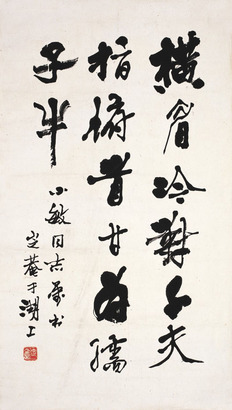 横眉冷對千夫
指俯首甘为孺
子牛
小敏同志属书
定菴于湖上